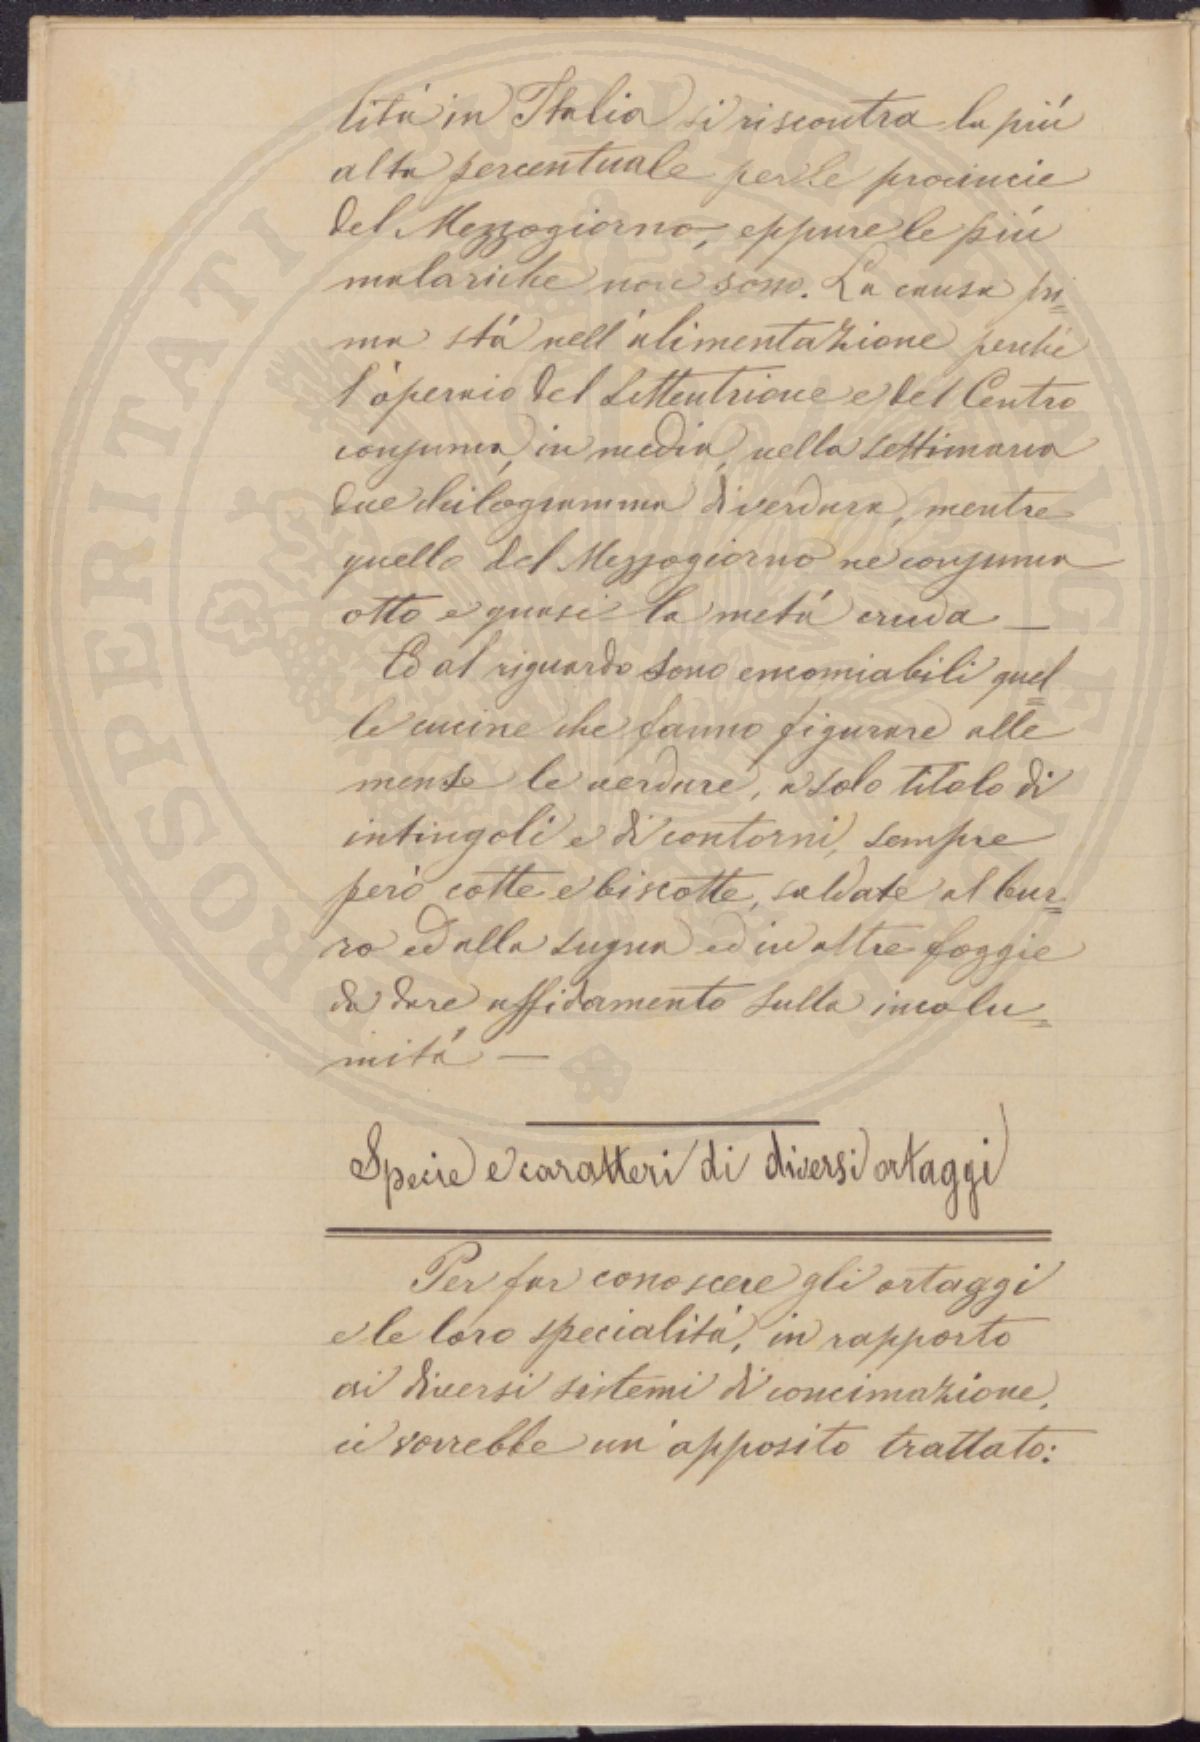 litá in Italia si riscontra la piú
alta percentuale per le provincie
del Mezzogiorno, eppure le piú
malariche non sono. La causa pri=
ma stá nell'alimentazione perché
l'operaio del Settentrione e del Centro
consuma, in media, nella settimana
due chilogramma di verdura, mentre
quello del Mezzogiorno ne consuma
otto e quasi la metá cruda —
Ed al riguardo sono encomiabili quel=
le cucine che fanno figurare alle
mense le verdure, a solo titolo di
intingoli e di contorni, sempre
però cotte e biscotte, saldate al bur=
ro ed alla sugna ed in altre foggie
da dare affidamento sulla incolu=
mitá —
Specie e caratteri di diversi ortaggi
Per far conoscere gli ortaggi
e le loro specialitá, in rapporto
ai diversi sistemi di concimazione,
ci vorrebbe un'apposito trattato: